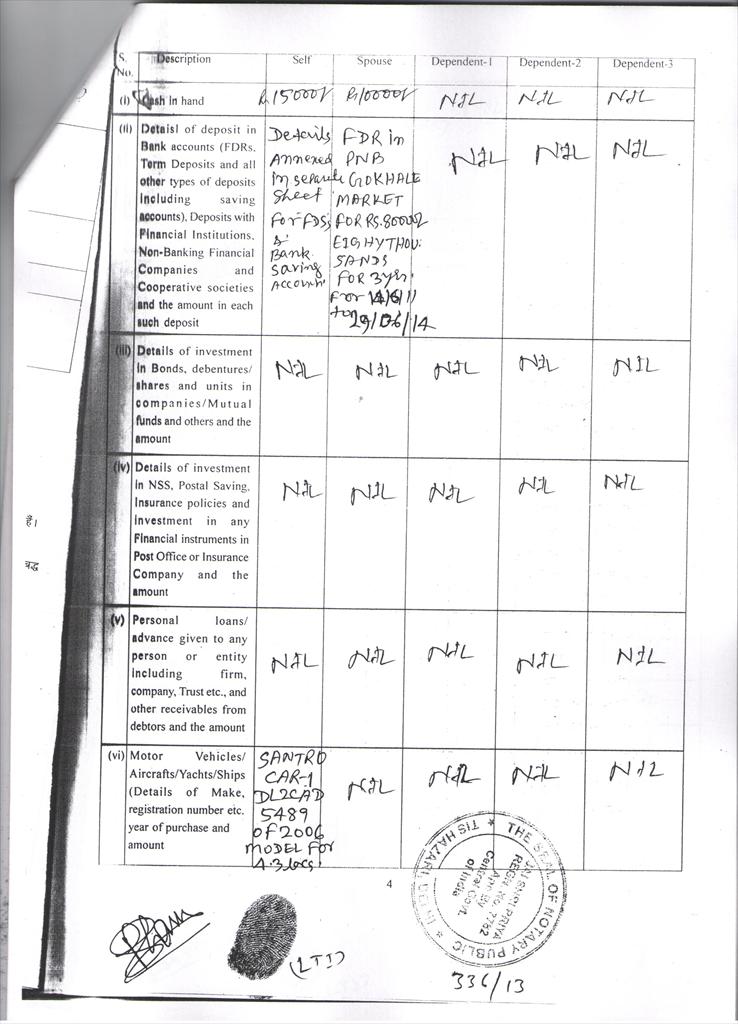 S. No. Description Self Spouse Dependent-1 Dependent-2 Dependent-3
(i) Cash in hand Rs 15000/ Rs 10000/ NIL NIL NIL
(ii) Detaisl of deposit in
Bank accounts (FDRs,
Term Deposits and all
other types of deposits
including saving
accounts), Deposits with
Financial Institutions,
Non-Banking Financial
Companies and
Cooperative societies
and the amount in each
such deposit
Details
Annexed
in separate
Sheet
For FDS's
&
Bank
Saving
Account
FDR in
PNB
GOKHALE
MARKET
FOR RS. 80000/
EIGHYTHOU
SANDS
FOR 3yrs
14/6/11
29/06/14
NIL NIL NIL
(iii) Details of investment
in Bonds, debentures/
shares and units in
companies/Mutual
funds and others and the
amount
NIL NIL NIL NIL NIL
(iv) Details of investment
in NSS, Postal Saving,
Insurance policies and
investment in any
Financial instruments in
Post Office or Insurance
Company and the
amount
NIL NIL NIL NIL NIL
(v) Personal loans/
advance given to any
person or entity
including firm,
company, Trust etc., and
other receivables from
debtors and the amount
NIL NIL NIL NIL NIL
(vi) Motor Vehicles/
Aircrafts/Yachts/Ships
(Details of Make,
registration number etc.
year of purchase and
amount
SANTRO
CAR-1
DL2CAD
5489
OF 2006
MODEL FOR
4.3 Lacs
NIL NIL NIL NIL
4
(LTI)
THE SEAL OF NOTARY PUBLIC
TIS HAZARI, DELHI
REGN. No. 7762
Central Govt.
of India
336/13
है।
बद्ध